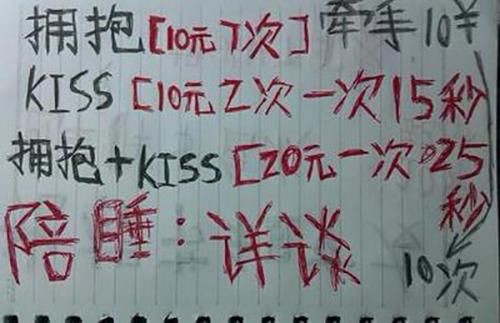 拥抱[10元7次] 牵手10¥
KISS [10元2次一次15秒
拥抱+KISS [20元一次25秒
陪睡：详谈
10次